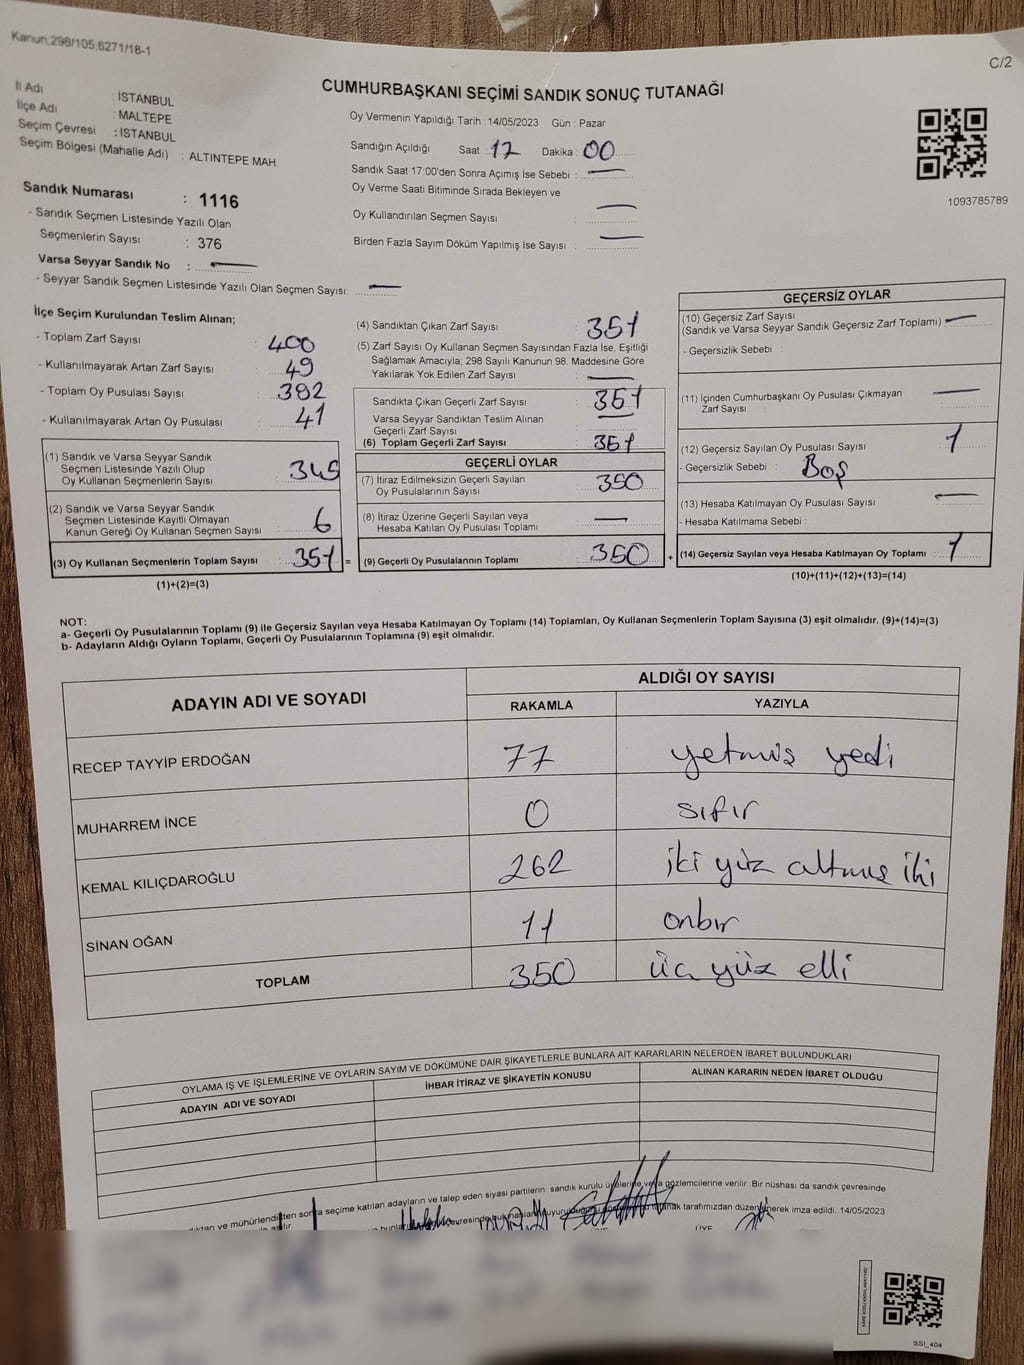 Kanun:298/105,6271/18-1
C/2
CUMHURBAŞKANI SEÇİMİ SANDIK SONUÇ TUTANAĞI
İl Adı : İSTANBUL
İlçe Adı : MALTEPE
Seçim Çevresi : İSTANBUL
Seçim Bölgesi (Mahalle Adı) : ALTINTEPE MAH.
Sandık Numarası : 1116
- Sandık Seçmen Listesinde Yazılı Olan
Seçmenlerin Sayısı : 376
Varsa Seyyar Sandık No : —
- Seyyar Sandık Seçmen Listesinde Yazılı Olan Seçmen Sayısı: —
Oy Vermenin Yapıldığı Tarih : 14/05/2023 Gün : Pazar
Sandığın Açıldığı Saat : 17 Dakika : 00
Sandık Saat 17:00'den Sonra Açımış İse Sebebi : —
Oy Verme Saati Bitiminde Sırada Bekleyen ve
Oy Kullandırılan Seçmen Sayısı : —
Birden Fazla Sayım Döküm Yapılmış İse Sayısı : —
1093785789
İlçe Seçim Kurulundan Teslim Alınan;
- Toplam Zarf Sayısı : 400
- Kullanılmayarak Artan Zarf Sayısı : 49
- Toplam Oy Pusulası Sayısı : 392
- Kullanılmayarak Artan Oy Pusulası : 41
(1) Sandık ve Varsa Seyyar Sandık
Seçmen Listesinde Yazılı Olup
Oy Kullanan Seçmenlerin Sayısı : 345
(2) Sandık ve Varsa Seyyar Sandık
Seçmen Listesinde Kayıtlı Olmayan
Kanun Gereği Oy Kullanan Seçmen Sayısı : 6
(3) Oy Kullanan Seçmenlerin Toplam Sayısı : 351 =
(1)+(2)=(3)
(4) Sandıktan Çıkan Zarf Sayısı : 351
(5) Zarf Sayısı Oy Kullanan Seçmen Sayısından Fazla İse, Eşitliği
Sağlamak Amacıyla; 298 Sayılı Kanunun 98. Maddesine Göre
Yakılarak Yok Edilen Zarf Sayısı : —
Sandıkta Çıkan Geçerli Zarf Sayısı : 351
Varsa Seyyar Sandıktan Teslim Alınan
Geçerli Zarf Sayısı : —
(6) Toplam Geçerli Zarf Sayısı : 351
GEÇERLİ OYLAR
(7) İtiraz Edilmeksizin Geçerli Sayılan
Oy Pusulalarının Sayısı : 350
(8) İtiraz Üzerine Geçerli Sayılan veya
Hesaba Katılan Oy Pusulası Toplamı : —
(9) Geçerli Oy Pusulalarının Toplamı : 350 +
GEÇERSİZ OYLAR
(10) Geçersiz Zarf Sayısı
(Sandık ve Varsa Seyyar Sandık Geçersiz Zarf Toplamı) : —
- Geçersizlik Sebebi :
(11) İçinden Cumhurbaşkanı Oy Pusulası Çıkmayan
Zarf Sayısı : —
(12) Geçersiz Sayılan Oy Pusulası Sayısı : 1
- Geçersizlik Sebebi : Boş
(13) Hesaba Katılmayan Oy Pusulası Sayısı : —
- Hesaba Katılmama Sebebi :
(14) Geçersiz Sayılan veya Hesaba Katılmayan Oy Toplamı : 1
(10)+(11)+(12)+(13)=(14)
NOT:
a- Geçerli Oy Pusulalarının Toplamı (9) ile Geçersiz Sayılan veya Hesaba Katılmayan Oy Toplamı (14) Toplamları, Oy Kullanan Seçmenlerin Toplam Sayısına (3) eşit olmalıdır. (9)+(14)=(3)
b- Adayların Aldığı Oyların Toplamı, Geçerli Oy Pusulalarının Toplamına (9) eşit olmalıdır.
ADAYIN ADI VE SOYADI ALDIĞI OY SAYISI
RAKAMLA YAZIYLA
RECEP TAYYİP ERDOĞAN 77 yetmiş yedi
MUHARREM İNCE 0 sıfır
KEMAL KILIÇDAROĞLU 262 iki yüz altmış iki
SİNAN OĞAN 11 onbir
TOPLAM 350 üç yüz elli
OYLAMA İŞ VE İŞLEMLERİNE VE OYLARIN SAYIM VE DÖKÜMÜNE DAİR ŞİKAYETLERLE BUNLARA AİT KARARLARIN NELERDEN İBARET BULUNDUKLARI
ADAYIN ADI VE SOYADI İHBAR İTİRAZ VE ŞİKAYETİN KONUSU ALINAN KARARIN NEDEN İBARET OLDUĞU
ve mühürlendikten sonra seçime katılan adayların ve talep eden siyasi partilerin sandık kurulu üyelerine veya gözlemcilerine verilir. Bir nüshası da sandık çevresinde
tarafımızdan düzenlenerek imza edildi. 14/05/2023
ÜYE
SSİ_404